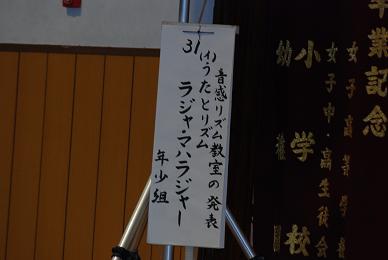 音感リズム教室の発表
31
(イ)うたとリズム
ラジャ・マハラジャー
年少組
卒業記念
女子高等学
女子中・高生徒会
小学校
幼稚